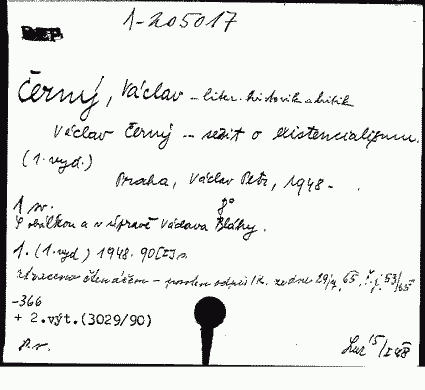 1-205017
DEP.
Černý, Václav - liter. historik a kritik
Václav Černý - sešit o existencialismu.
(1. vyd.)
Praha, Václav Petr, 1948 -
1 sv. 8°
S obálkou a v úpravě Václava Bláhy.
1. (1. vyd) 1948. 90[I]s.
ztraceno čtenářem - ze dne 29/4 65 č.j. 53/65
-366
+ 2.výt.(3029/90)
15/I 48